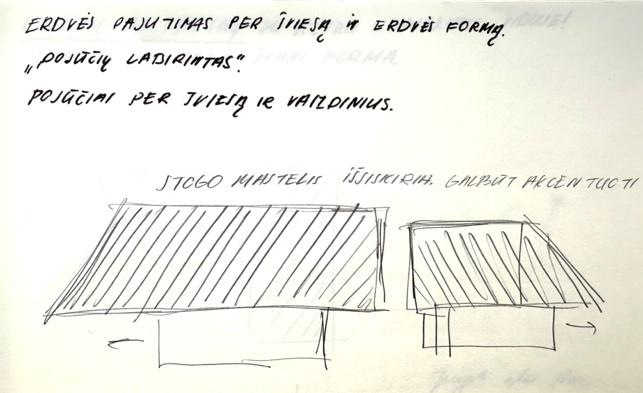 ERDVĖS PAJUTIMAS PER ŠVIESĄ IR ERDVĖS FORMĄ.
„POJŪČIŲ LABIRINTAS“.
POJŪČIAI PER ŠVIESĄ IR VAIZDINIUS.
STOGO MASTELIS IŠSISKIRIA. GALBŪT AKCENTUOTI